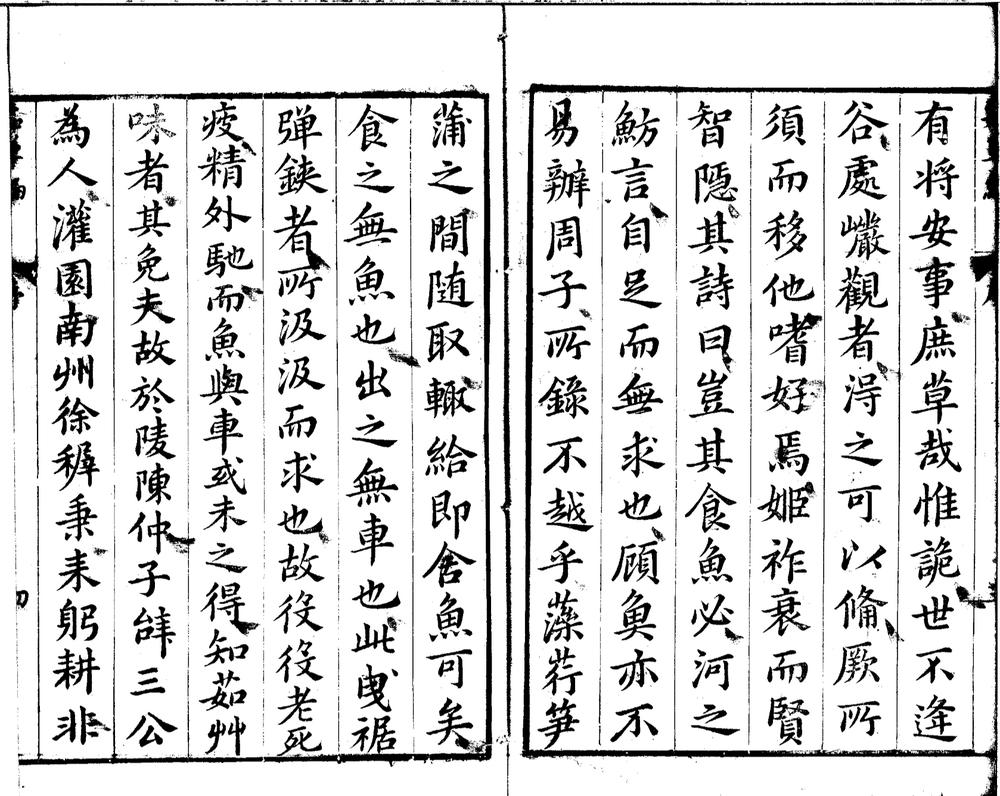 有將安事庶草哉惟詭世不逢
谷處巖觀者淂之可以備厥所
須而移他嗜好焉姬祚衰而賢
智隱其詩曰豈其食魚必河之
魴言自足而無求也顧奐亦不
易辦周子所錄不越乎藻荇筍
蒲之間随取輙給即舍魚可矣
食之無魚也出之無車也此曵裾
彈鋏者所汲汲而求也故役役老死
疲精外馳而魚與車或未之得知茹艸
味者其免夫故於陵陳仲子辤三公
為人灌園南州徐穉秉耒躬耕非